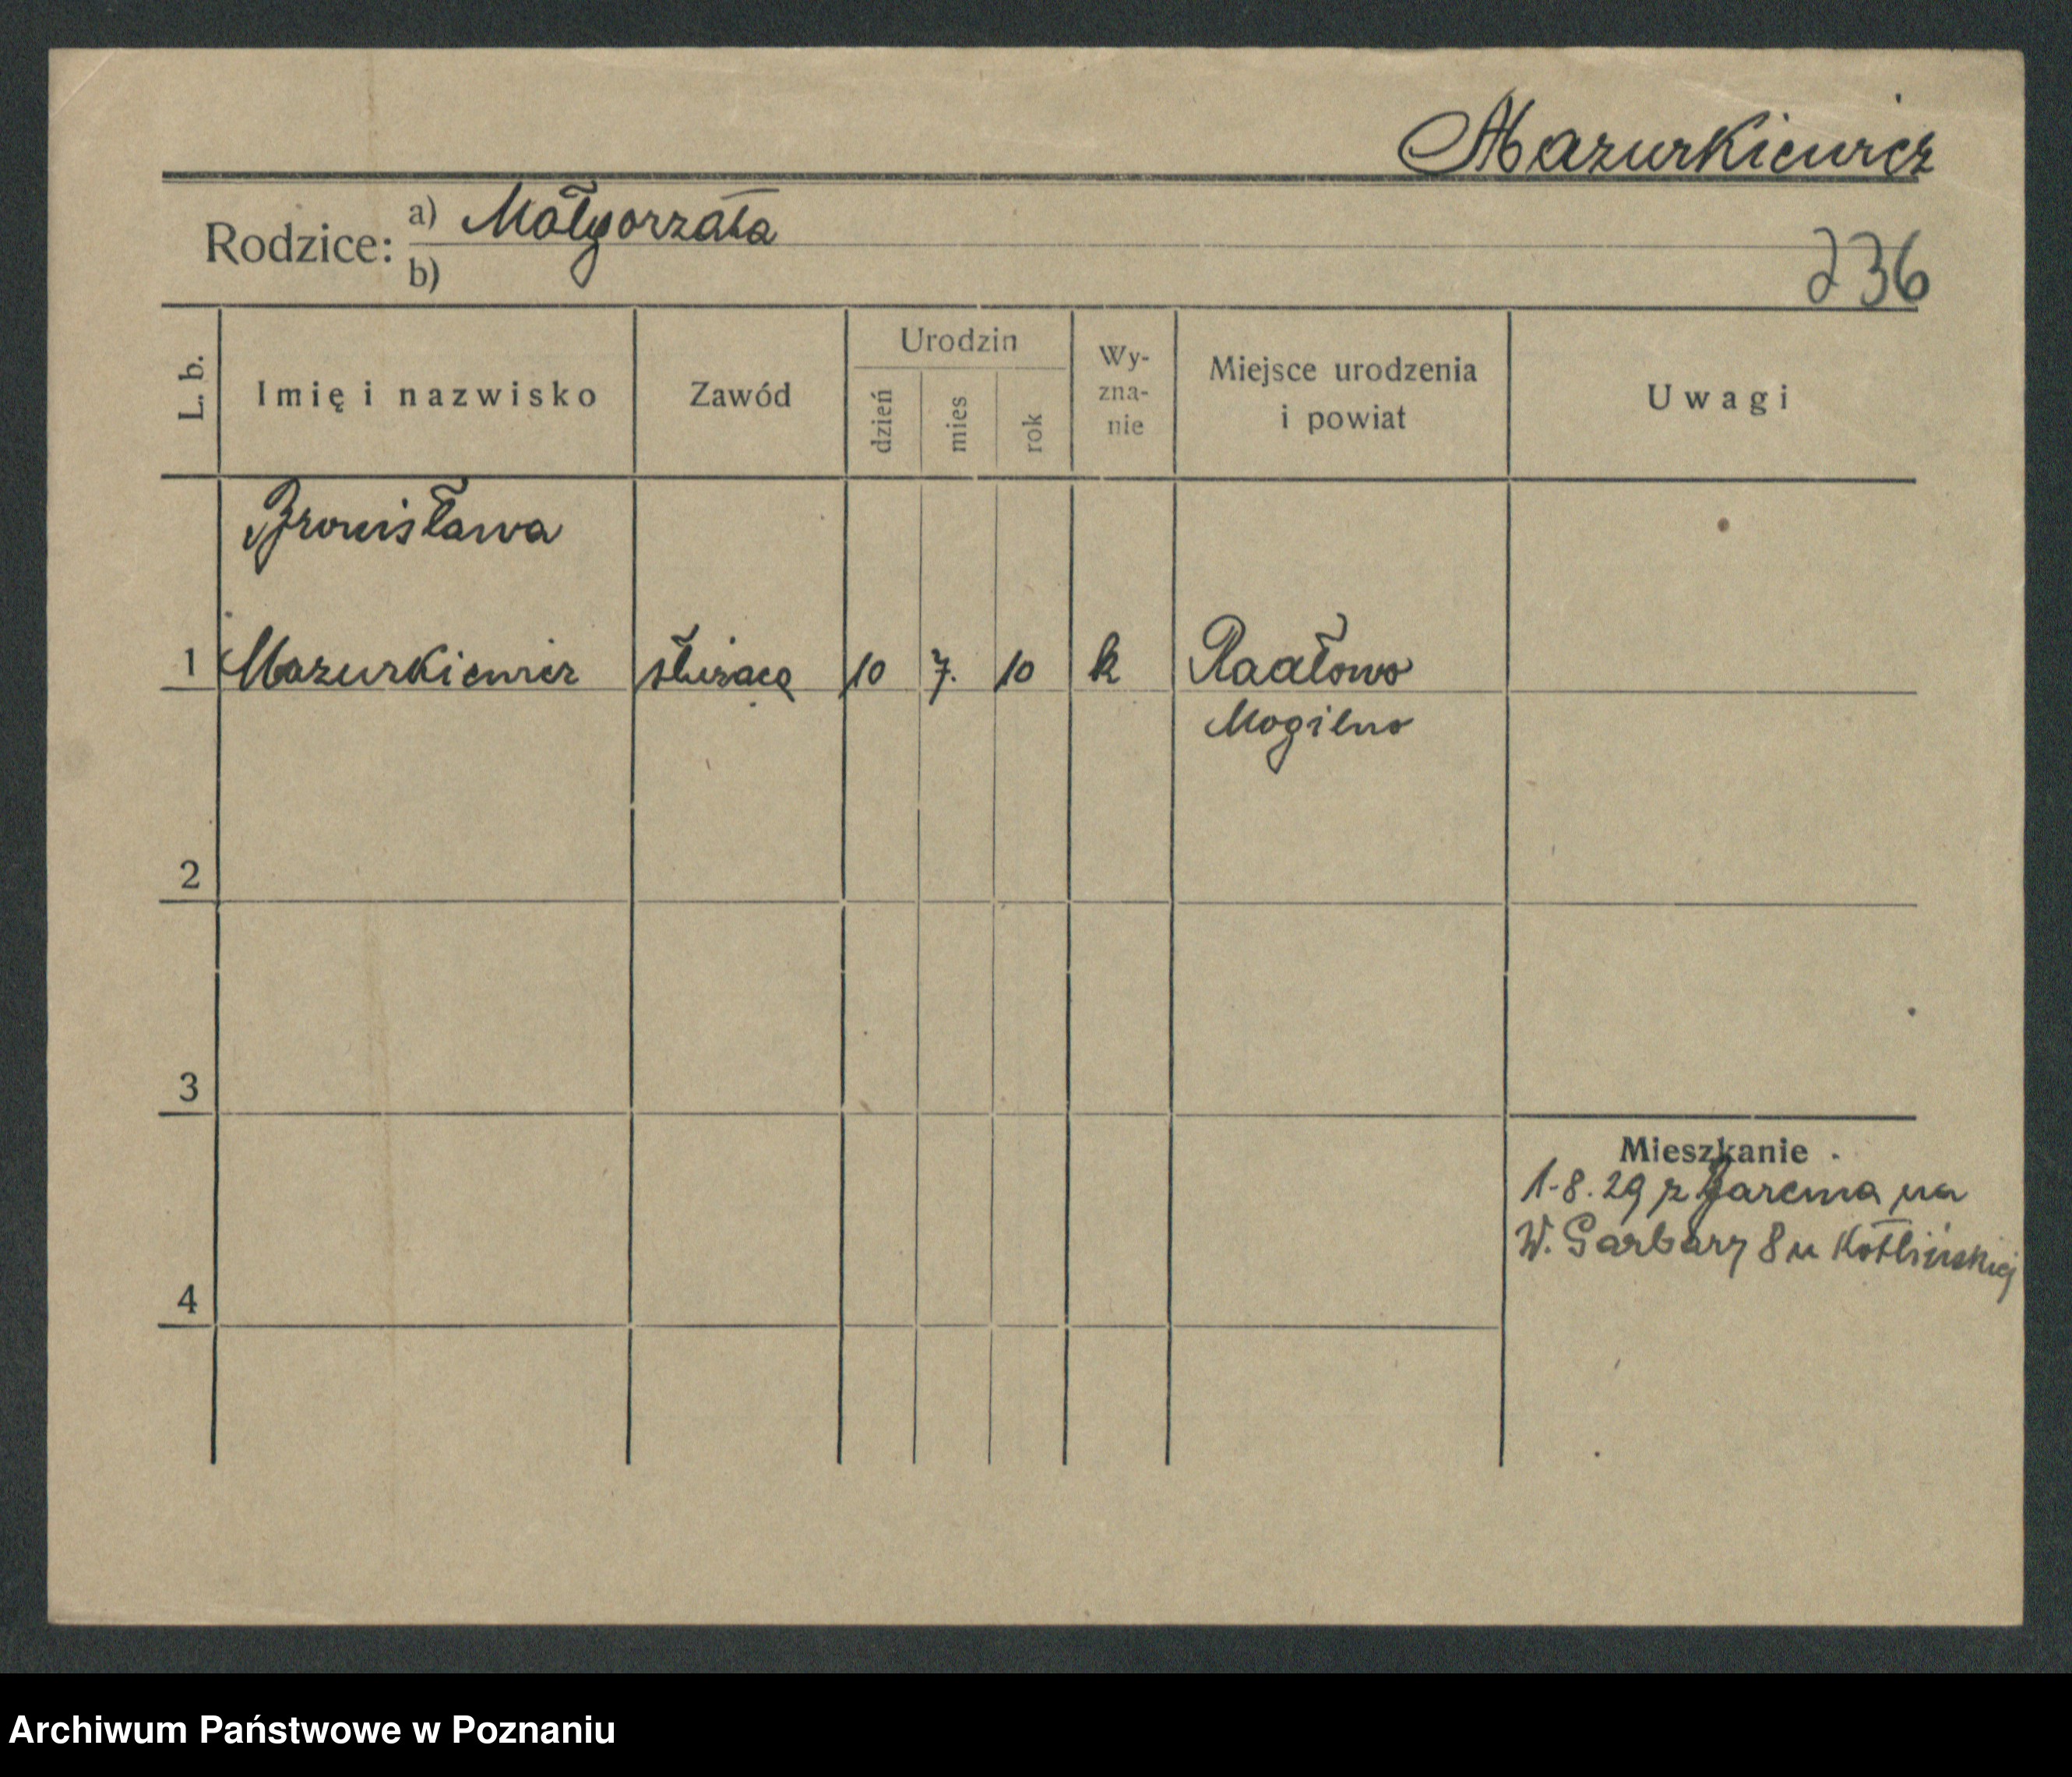 Mazurkiewicz
Rodzice: a) Małgorzata
b)
236
L. b.
Imię i nazwisko
Zawód
Urodzin
dzień
mies
rok
Wy-
zna-
nie
Miejsce urodzenia
i powiat
Uwagi
Bronisława
1 Mazurkiewicz służąca 10 7. 10 k
Mogilno
2
3
Mieszkanie
1-8.29 z na
W. Garbary 8 u Kotlińskiej
4
Archiwum Państwowe w Poznaniu